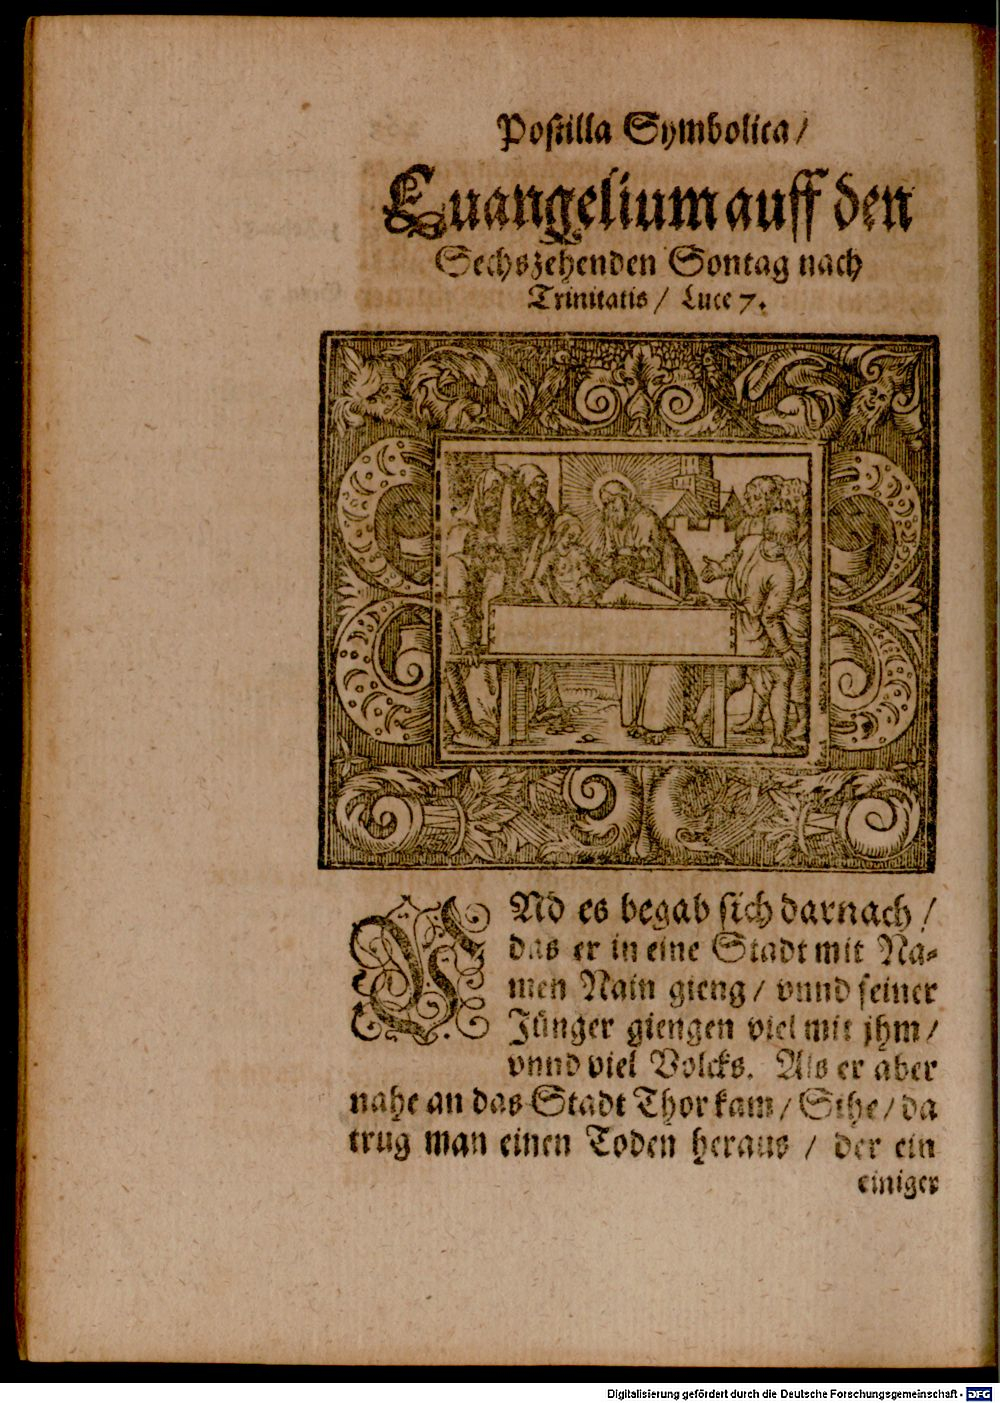 Postilla Symbolica/
Euangelium auff den
Sechszehenden Sontag nach
Trinitatis / Luce 7.
VNd es begab sich darnach /
das er in eine Stadt mit Na-
men Nain gieng / vnnd seiner
Jünger giengen viel mit jhm /
vnnd viel Volcks. Als er aber
nahe an das Stadt Thor kam / Sihe / da
trug man einen Toden heraus / der ein
einiger
Digitalisierung gefördert durch die Deutsche Forschungsgemeinschaft - DFG